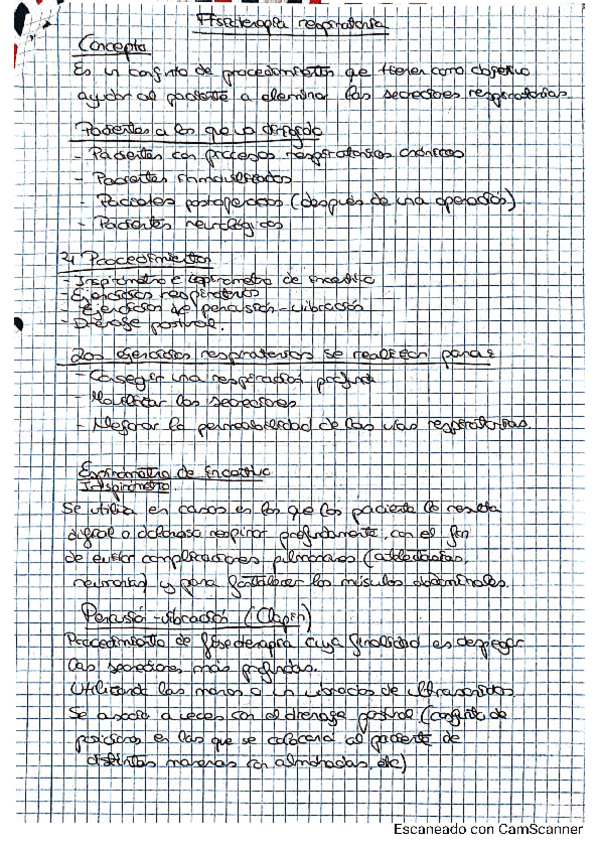 Fisioterapia respiratoria
Concepto
Es un conjunto de procedimientos que tienen como objetivo
ayudar al paciente a eliminar las secreciones respiratorias.
Pacientes a los que va dirigido
- Pacientes con procesos respiratorios crónicos
- Pacientes inmovilizados
- Pacientes postoperados (después de una operación)
- Pacientes neurológicos
4 Procedimientos
- Inspirometro e espirometro de incentivo
- Ejercicios respiratorios
- Ejercicios de percusión-vibración
- Drenage postural.
Los ejercicios respiratorios se realizan para:
- Conseguir una respiración profunda
- Movilizar las secreciones
- Mejorar la permeabilidad de las vias respiratorias.
Espirometria de incentivo
Inspirometro
Se utiliza en casos en los que los paciente le resulta
dificil o doloroso respirar profundamente, con el fin
de evitar complicaciones pulmonares (atelectasias,
neumonia) y para fortalecer los músculos abdominales.
Percusió-vibración (Clapin)
Procedimiento de fisioterapia cuya finalidad es despegar
las secreciones más profundas.
Utilizando las manos o un vibrador de ultrasonidos.
Se asocia a veces con el drenage postural (conjunto de
posiciones en las que se colocará al paciente de
distintas maneras con almohadas, etc)
Escaneado con CamScanner